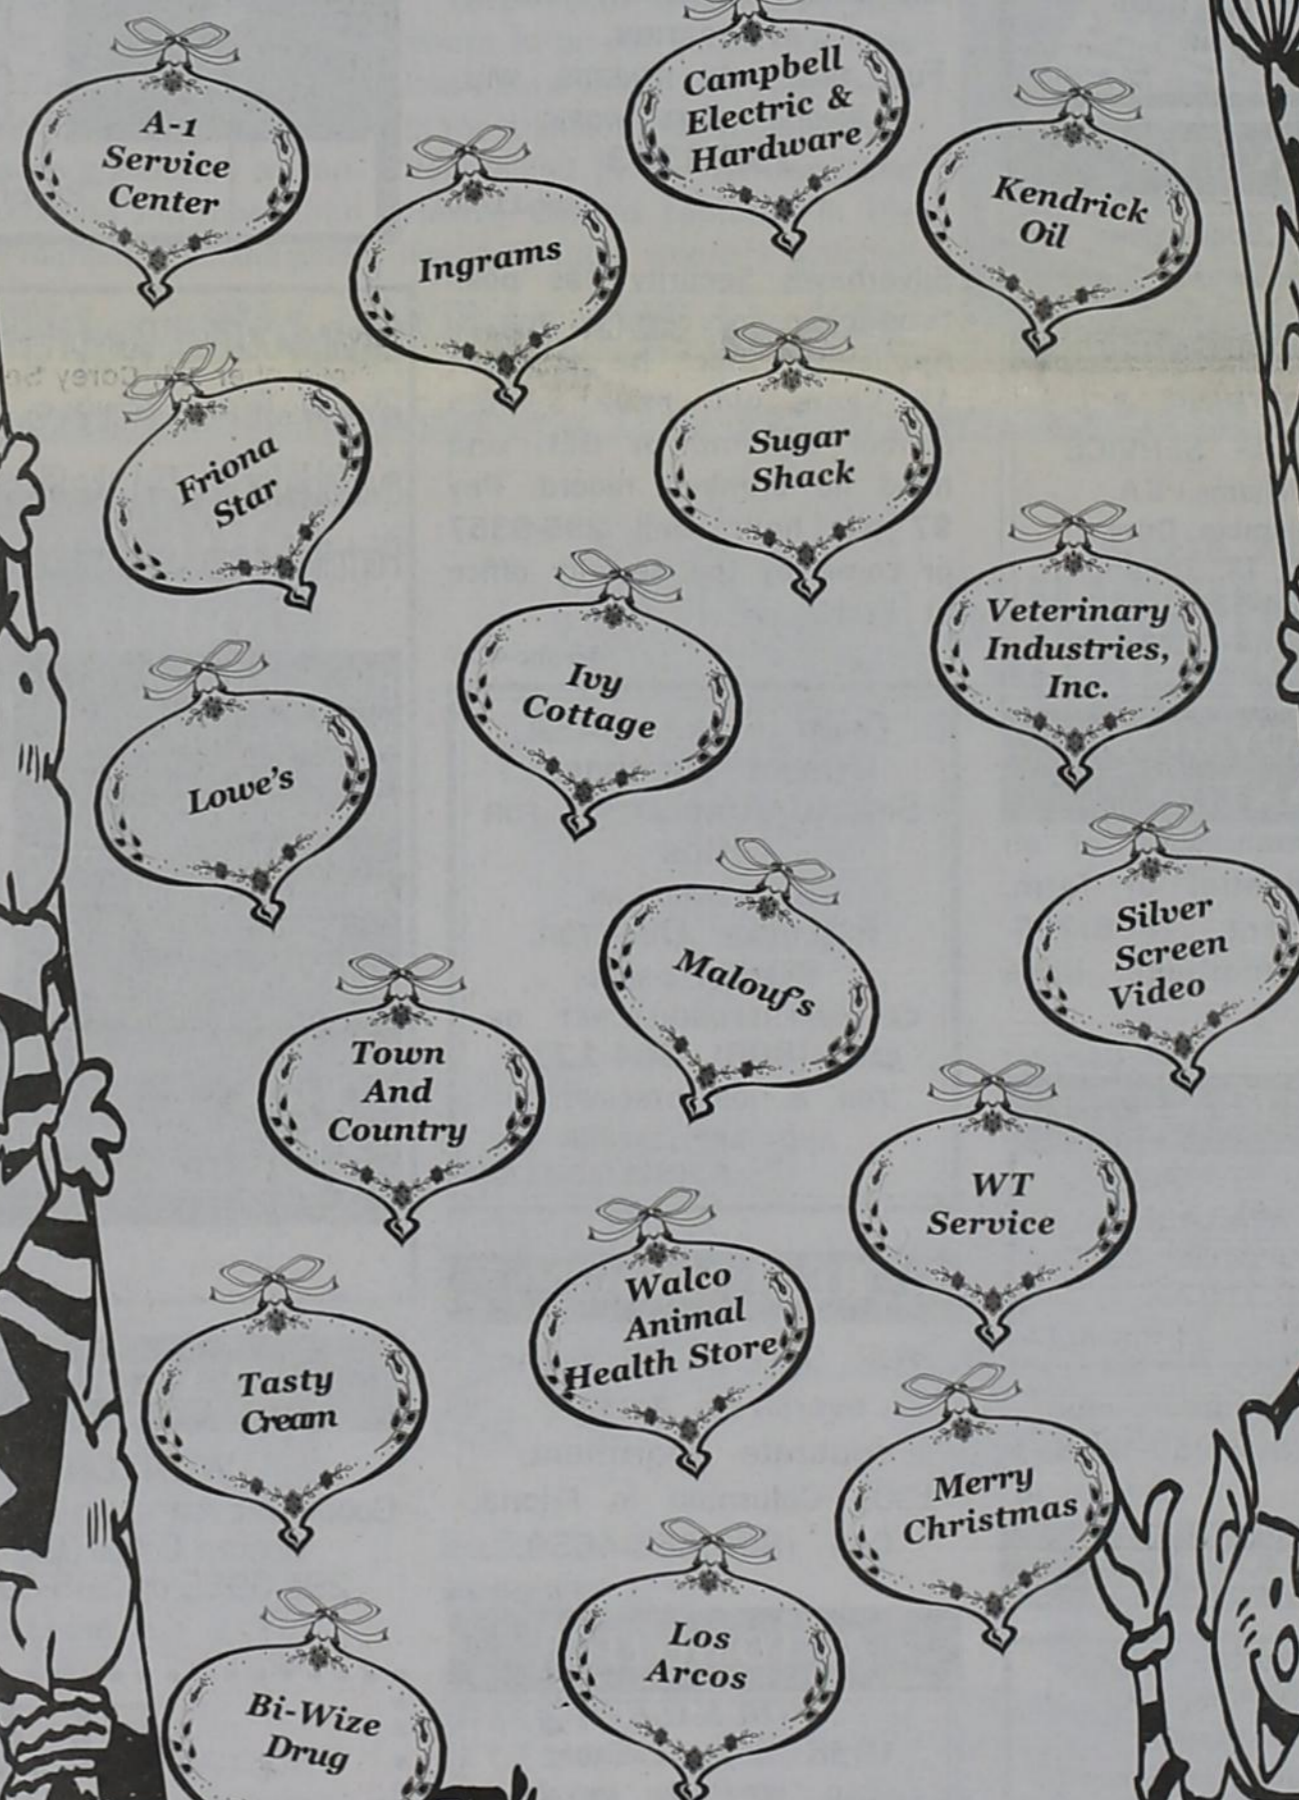 A-1
Service
Center
Ingrams
Campbell
Electric &
Hardware
Kendrick
Oil
Friona
Star
Sugar
Shack
Veterinary
Industries,
Inc.
Ivy
Cottage
Lowe's
Malouf's
Silver
Screen
Video
Town
And
Country
WT
Service
Walco
Animal
Health Store
Tasty
Cream
Merry
Christmas
Los
Arcos
Bi-Wize
Drug